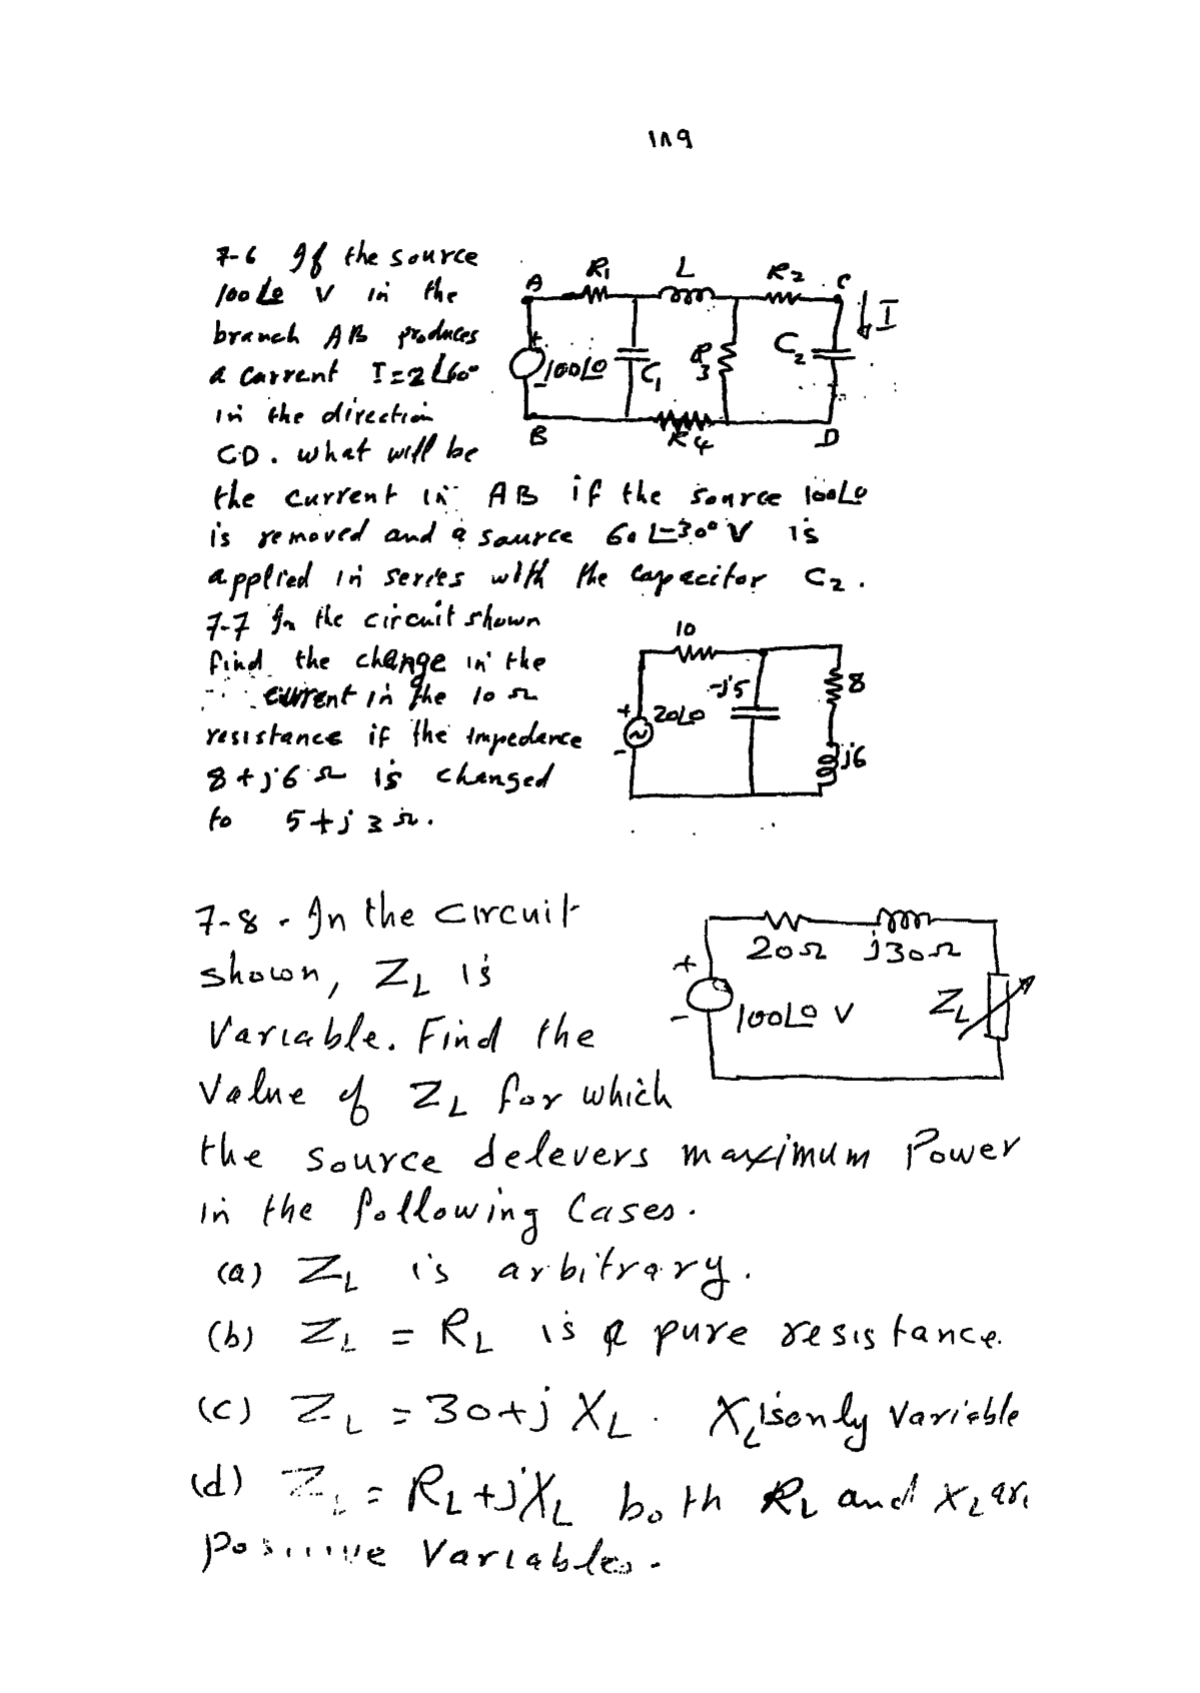 ١٨٩
7-6 If the source
100∠0 V in the
branch AB produces
a current I=2∠60°
in the direction
CD. what will be
the current in AB if the source 100∠0
is removed and a source 60∠-30° V is
applied in series with the capacitor C2.
A R1 L R2 C
I
100∠0 C1 R3 C2
B R4 D
7-7 In the circuit shown
find the change in the
current in the 10 Ω
resistance if the impedance
8+j6 Ω is changed
to 5+j3 Ω.
10
-j5 8
+ 20∠0
- j6
7-8 - In the circuit
shown, ZL is
Variable. Find the
Value of ZL for which
the source delevers maximum Power
in the following Cases.
20Ω j30Ω
+
- 100∠0 V ZL
(a) ZL is arbitrary.
(b) ZL = RL is a pure resistance.
(c) ZL = 30+j XL. XL is only Variable
(d) ZL = RL+jXL both RL and XL are
positive Variables.